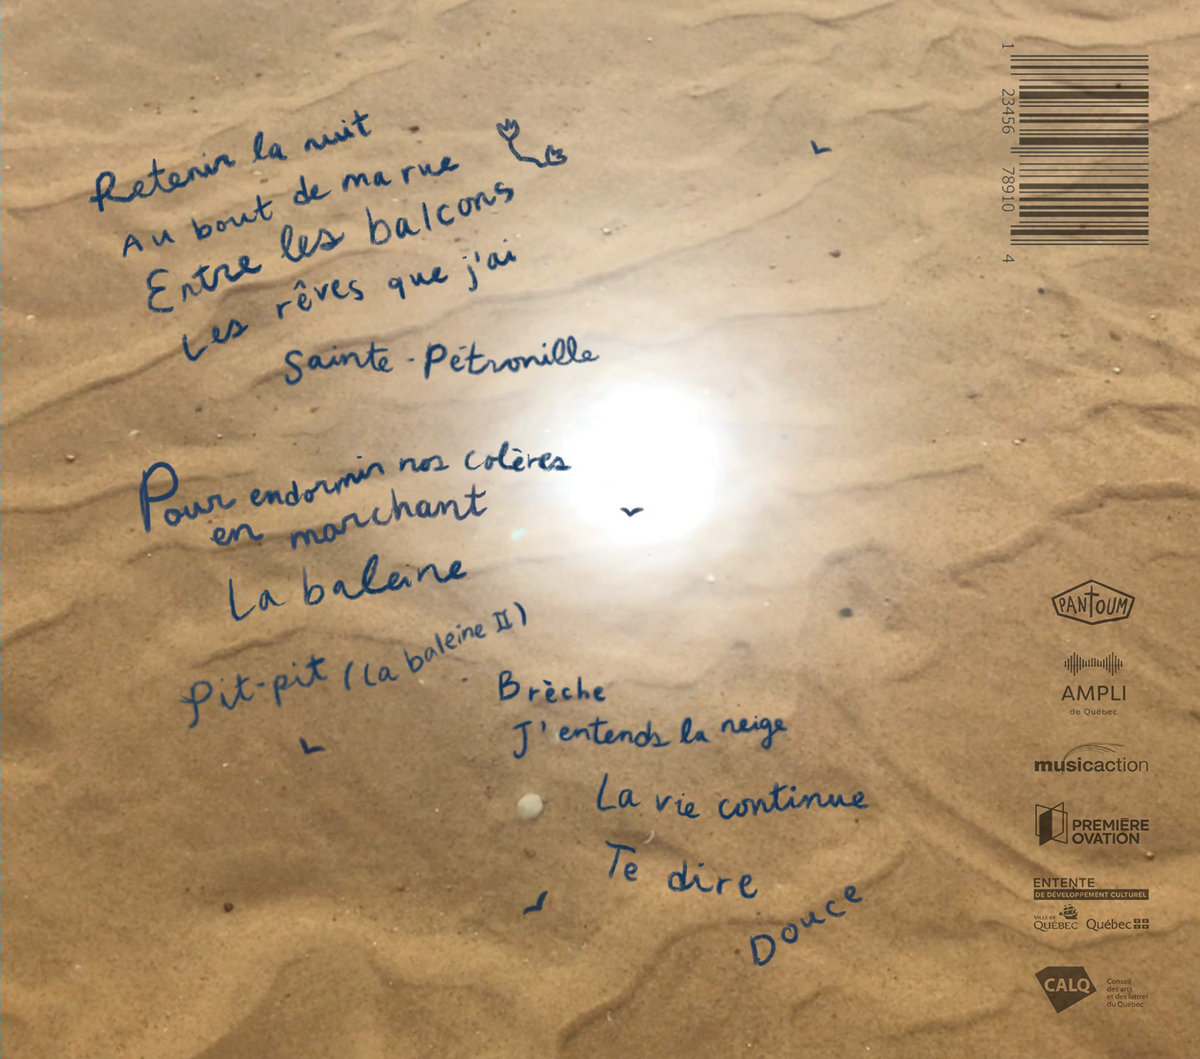 Retenir la nuit
Au bout de ma rue
Entre les balcons
Les rêves que j'ai
Sainte-Pétronille
Pour endormir nos colères
en marchant
La baleine
Pit-pit (la baleine II)
Brèche
J'entends la neige
La vie continue
Te dire
Douce
1 23456 78910 4
PANTOUM
AMPLI
de Québec
musicaction
PREMIÈRE
OVATION
ENTENTE
DE DÉVELOPPEMENT CULTUREL
VILLE DE
QUÉBEC
Québec
CALQ
Conseil
des arts
et des lettres
du Québec